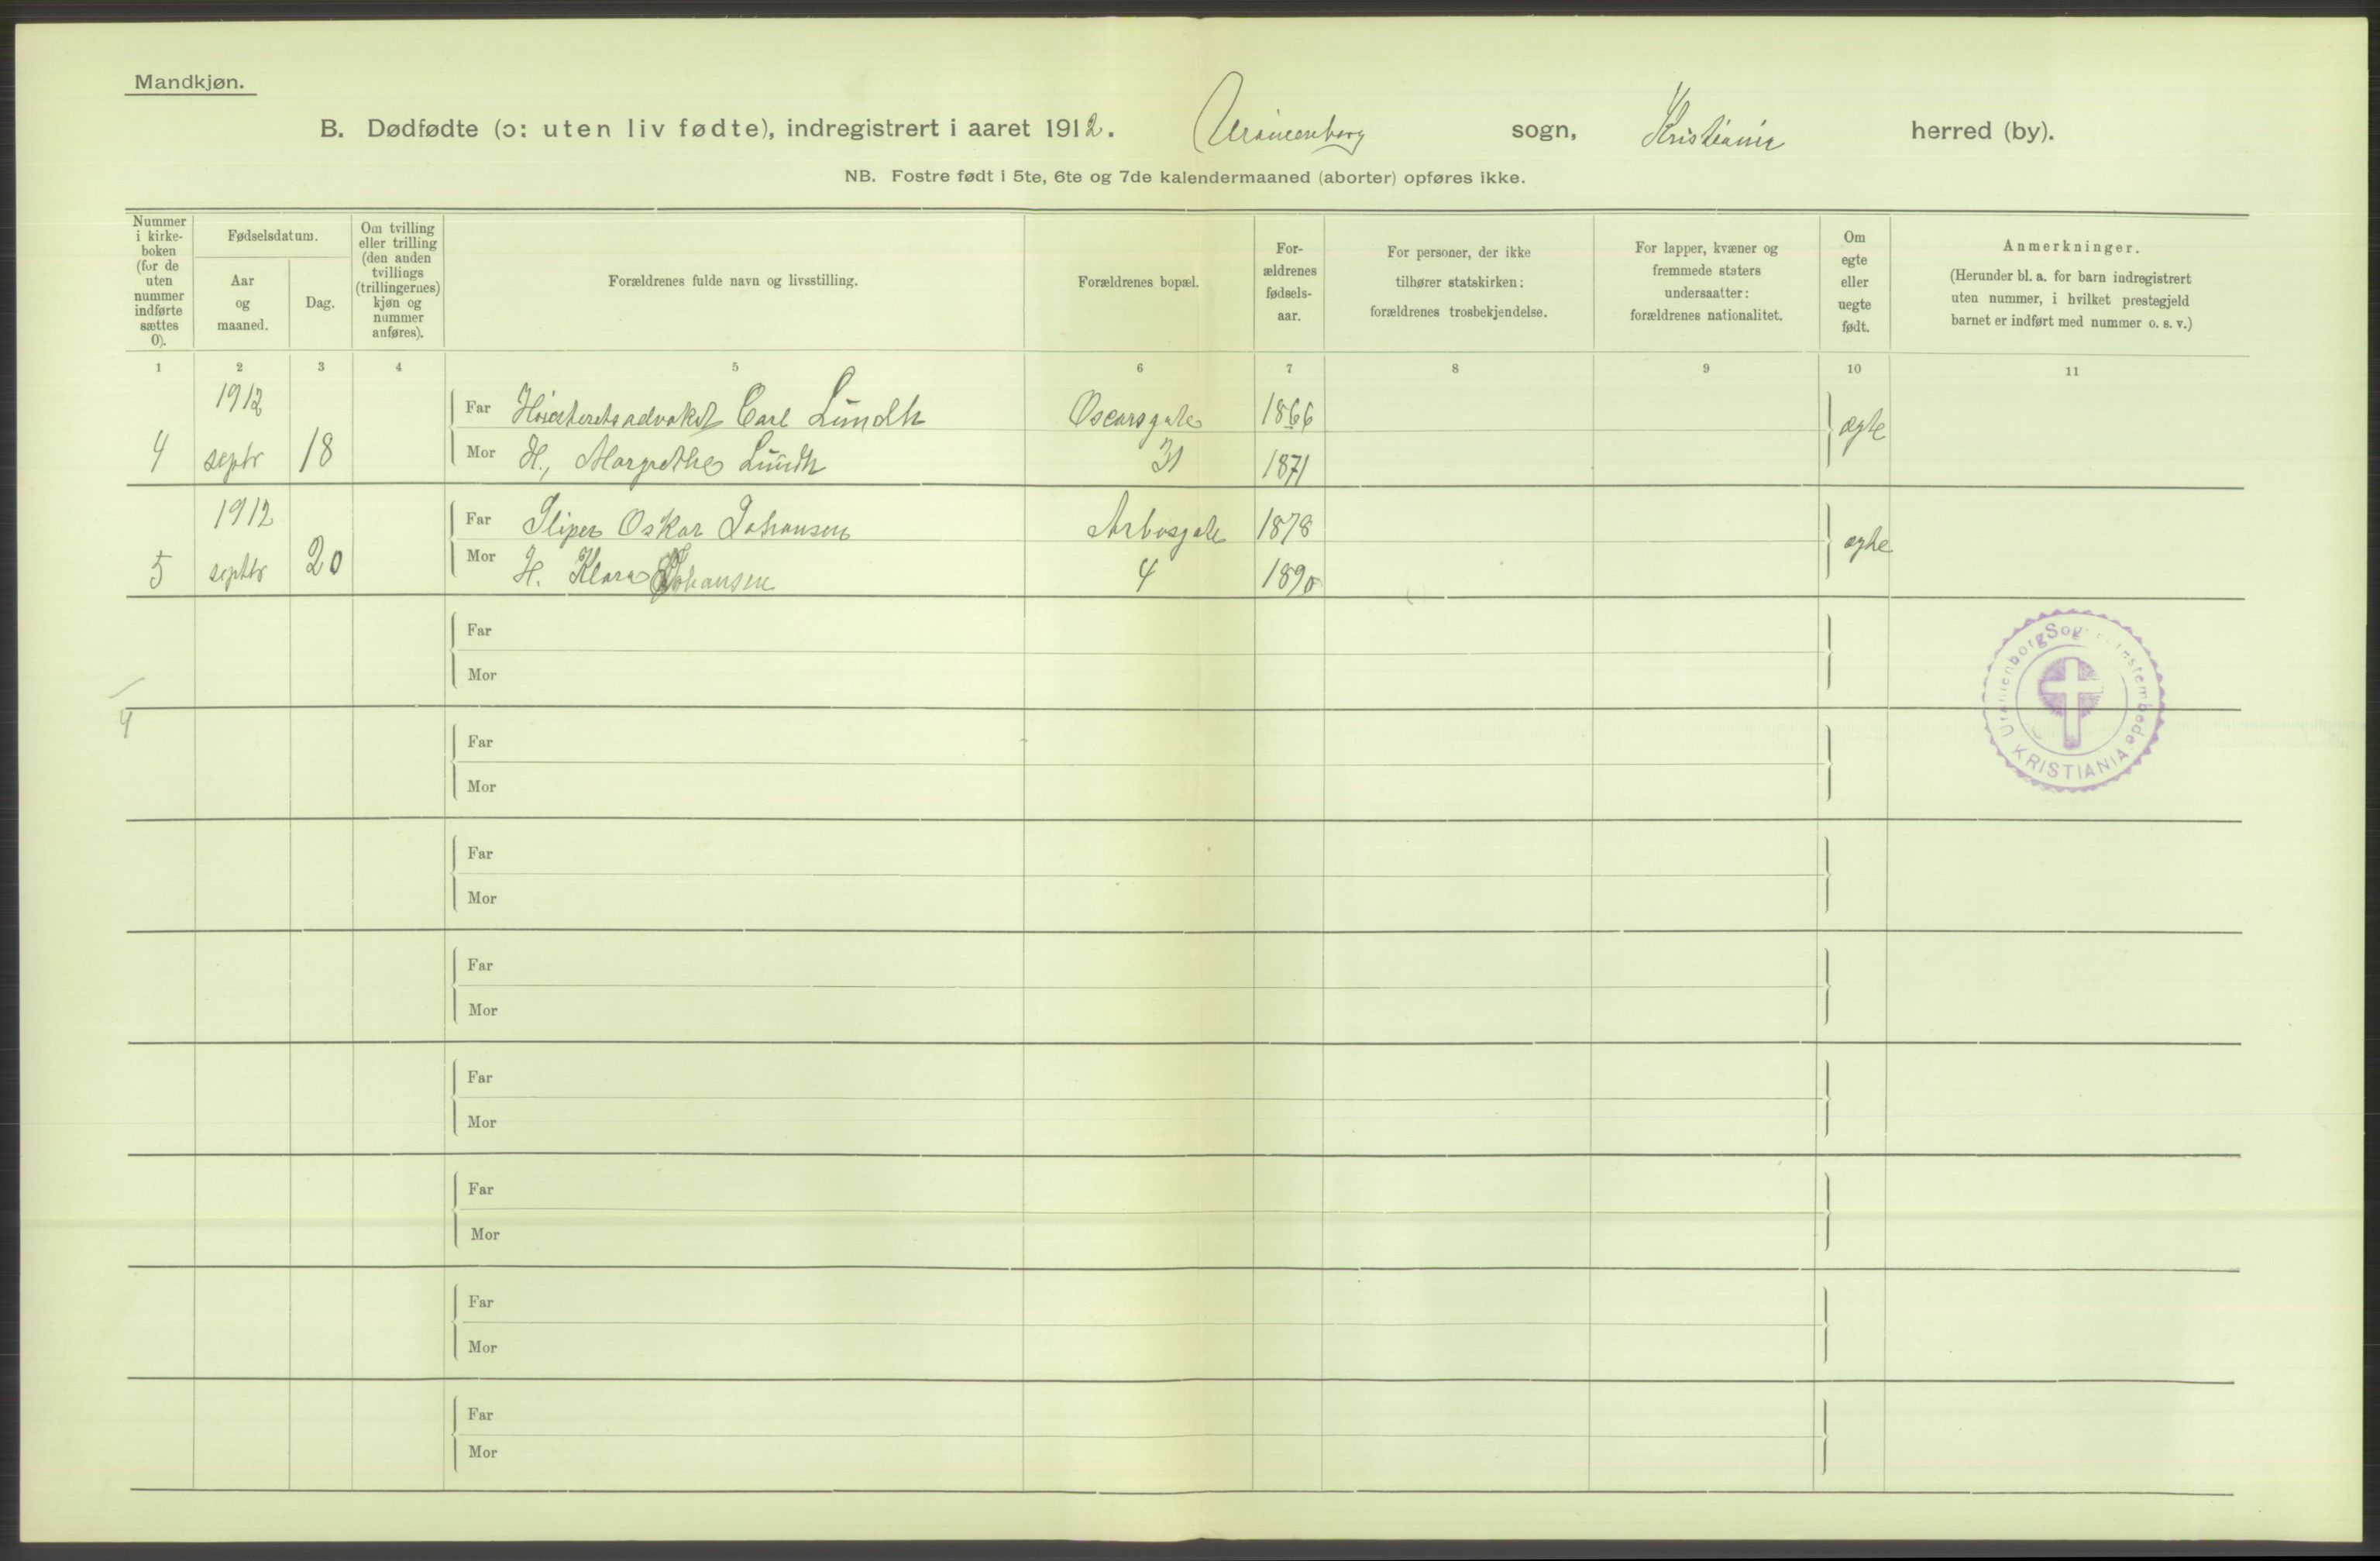 Mandkjøn.
B. Dødfødte (ɔ: uten liv fødte), indregistrert i aaret 1912. Uranienborg sogn, Kristiania herred (by).
NB. Fostre født i 5te, 6te og 7de kalendermaaned (aborter) opføres ikke.
Nummer i kirke-boken (for de uten nummer indførte sættes 0).
Fødselsdatum.
Aar og maaned.
Dag.
Om tvilling eller trilling (den anden tvillings (trillingernes) kjøn og nummer anføres).
Forældrenes fulde navn og livsstilling.
Forældrenes bopæl.
For-ældrenes fødsels-aar.
For personer, der ikke tilhører statskirken: forældrenes trosbekjendelse.
For lapper, kvæner og fremmede staters undersaatter: forældrenes nationalitet.
Om egte eller uegte født.
Anmerkninger.
(Herunder bl. a. for barn indregistrert uten nummer, i hvilket prestegjeld barnet er indført med nummer o. s. v.)
1 2 3 4 5 6 7 8 9 10 11
1912 Far Høiesteretsadvokat Carl Lundh Oscarsgate 1866
4 septr 18 Mor H., Margrethe Lundh 31 1871 ægte
1912 Far Sliper Oskar Johansen Arbosgate 1878
5 septbr 20 Mor H. Klara Johansen 4 1890 ægte
Far
Mor
4
Far
Mor
Far
Mor
Far
Mor
Far
Mor
Far
Mor
Far
Mor
Far
Mor
Uranienborg Sog
stembede.
KRISTIANIA